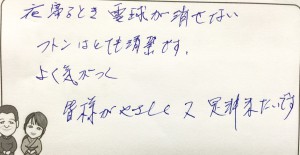 夜寝るとき 電球が消せない
フトンはとても清潔です。
よく気がつく
皆様がやさしく 又 是非来たいです